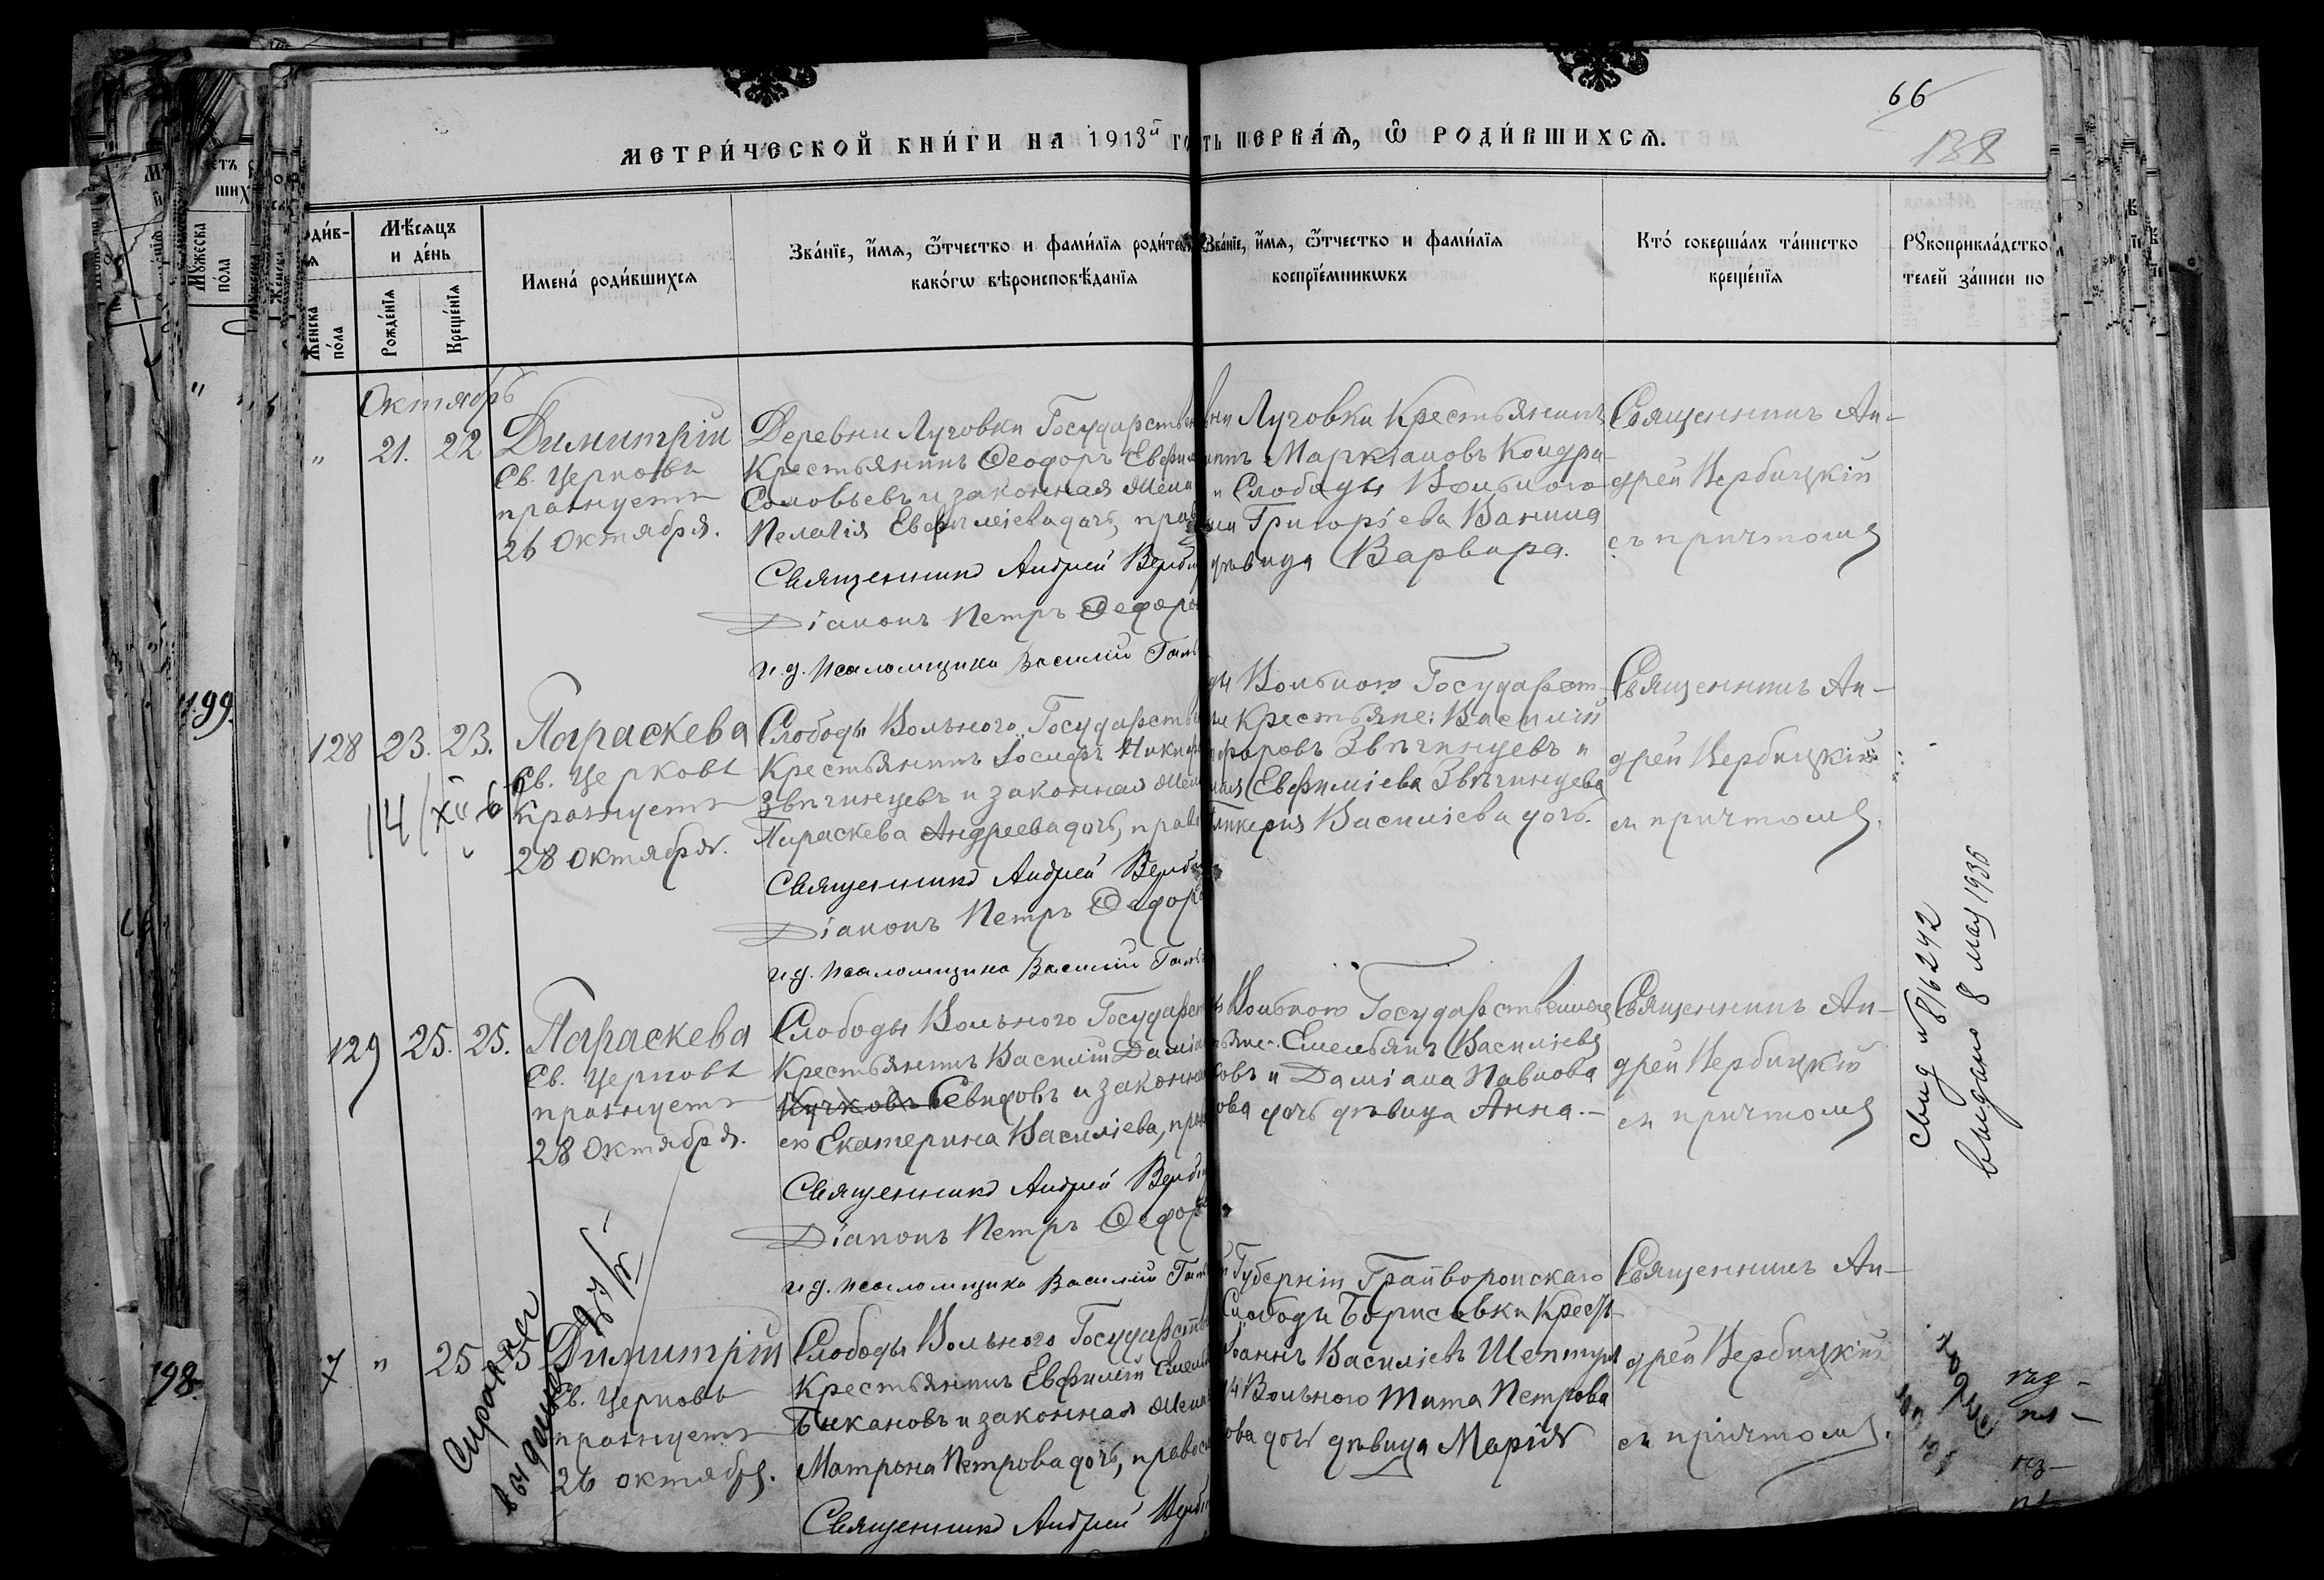 66
138
МЕТРИ́ЧЕСКОЙ КНИ́ГИ НА 1913й го
ть ПЕРВА́Ѧ, Ѡ҆ РОДИ́ВШИХСѦ.
Мѣ́сѧцъ
и де́нь
Имена̀ роди́вшихсѧ
Зва́нїе, и҆́мѧ, ѻ҆́тчество и фами́лїѧ роди́тел
како́гѡ вѣроисповѣ́данїѧ
Зва́нїе, и҆́мѧ, ѻ҆́тчество и фами́лїѧ
воспрїе́мникѡвъ
Кто̀ соверша́лъ та́инство
креще́нїѧ
Рꙋкоприкла́дство
телей за́писи по
Же́нска
по́ла
Рожде́нїѧ
Креще́нїѧ
Мꙋ́жеска
по́ла
Октябрь
" 21. 22
Димитрій
Св. Церковь
празнуетъ
26 Октября.
Деревни Луговки Государствен
Крестьянинъ Ѳеодоръ Евфим
Соловьевъ и законная жена
Пелагія Евфиміева дочь, прав
Священникъ Андрей Верби
Діаконъ Петръ Ѳедоро
И. д. псаломщика Василій
Луговки Крестьянинъ
Маркіановъ Кондра-
и Слободы Вольного
Григорьева Ванина
дѣвица Варвара.
Священникъ Ан-
дрей Вербицкій
съ причтомъ
199.
128 23. 23.
Параскева
Св. Церковь
празнуетъ
28 Октября.
Слободы Вольного Государств
Крестьянинъ Іосифъ Никиф
Звягинцевъ и законная жен
Параскева Андреева дочь, прав
Священникъ Андрей Верби
Діаконъ Петръ Ѳедоро
И. д. псаломщика Василій
ды Вольного Государст
Крестьяне: Василій
форовъ Звягинцевъ и
Евфиміева Звягинцева
Гликерія Василіева дочь.
Священникъ Ан-
дрей Вербицкій
съ причтомъ.
129 25. 25.
Параскева
Св. Церковь
празнуетъ
28 Октября.
Слободы Вольного Государст
Крестьянинъ Василій Даміа
Кучковъ Севидовъ и законна
его Екатерина Василіева, пра
Священникъ Андрей Верби
Діаконъ Петръ Ѳедоро
И. д. псаломщика Василій
Вольного Государственные
Емельянъ Василіевъ
овъ и Даміана Павлова
ова дочь дѣвица Анна.-
Священникъ Ан-
дрей Вербицкій
съ причтомъ
Свид № 816242
выдано 8 мая 1936
198.
" 25
Димитрій
Св. Церковь
празнуетъ
26 октября.
Слободы Вольного Государств
Крестьянинъ Евфимій Емель
Быкановъ и законная жена
Матрона Петрова дочь, правос
Священникъ Андрей Верби
Губерніи Грайворонскаго
Слободы Борисовки Крест
Іоаннъ Василіевъ Шептух
Вольного Тита Петрова
ова дочь дѣвица Марія
Священникъ Ан-
дрей Вербицкій
съ причтомъ.
Справка
выдана